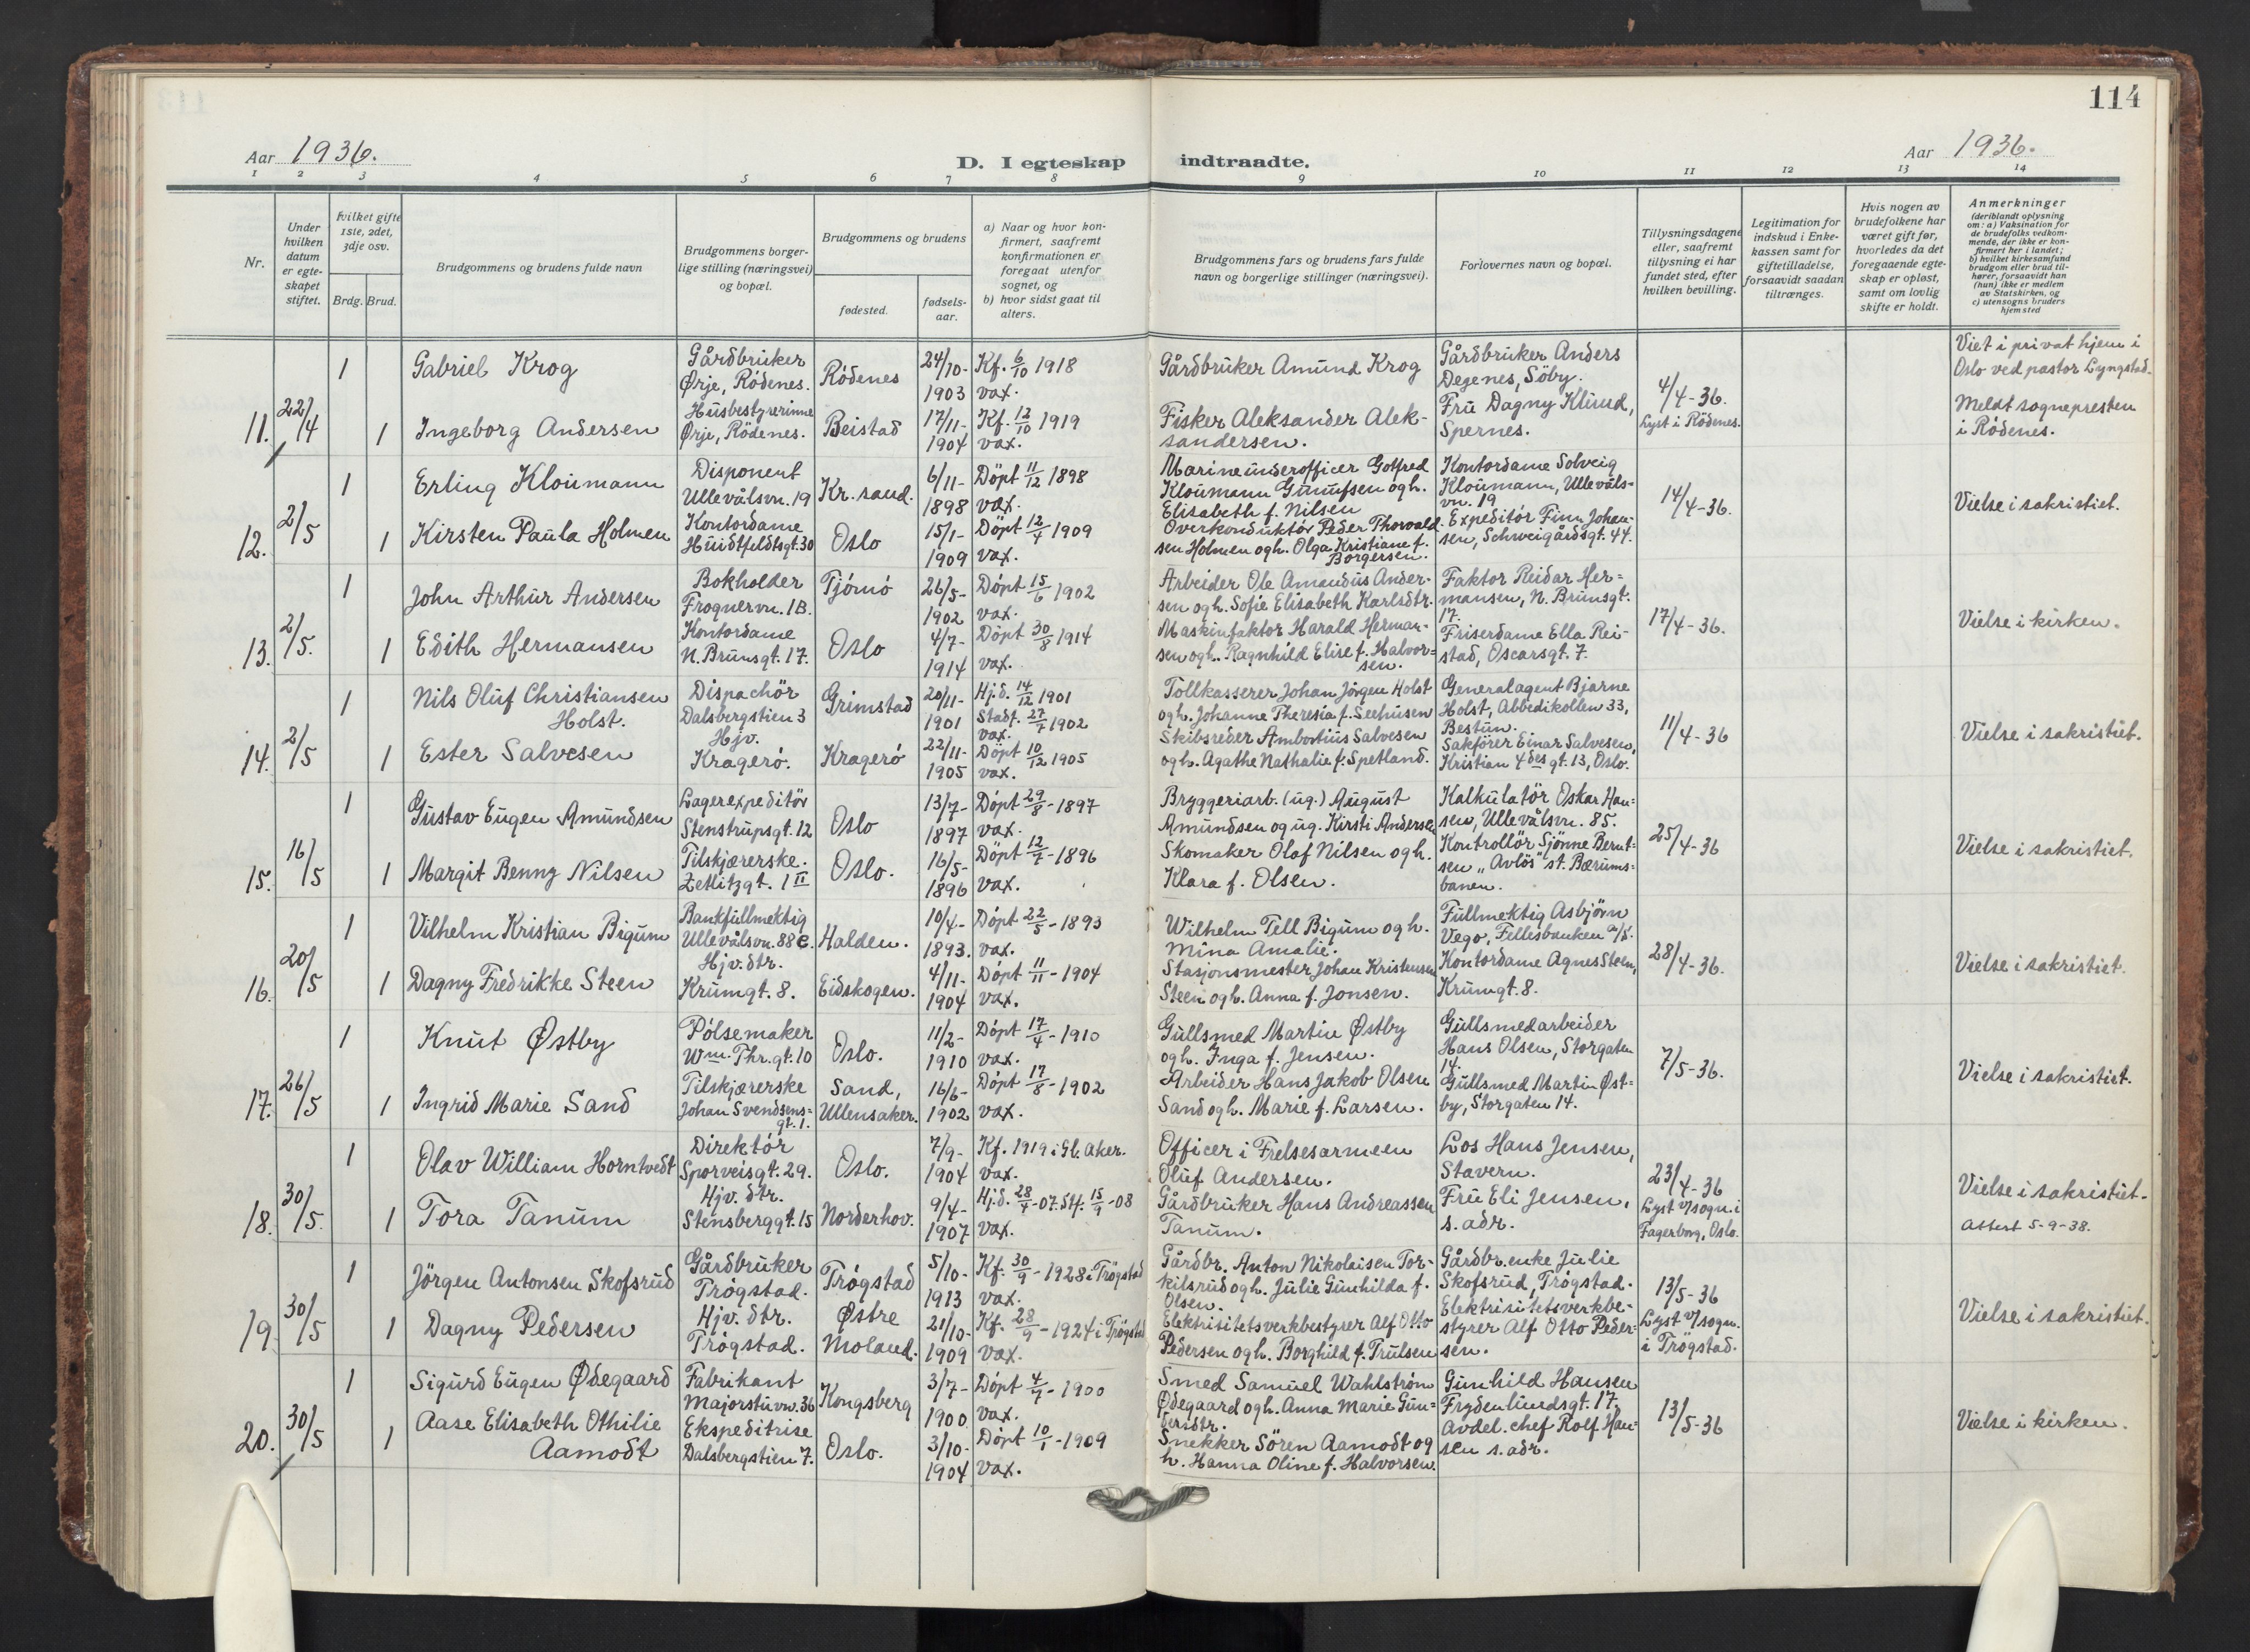 114
Aar 1936.
D. I egteskap indtraadte.
Aar 1936.
1 2 3 4 5 6 7 8 9 10 11 12 13 14
Nr.
Under hvilken datum er egteskapet stiftet.
Hvilket gifte 1ste, 2det, 3dje osv.
Brdg. Brud.
Brudgommens og brudens fulde navn
Brudgommens borgerlige stilling (næringsvei) og bopæl.
Brudgommens og brudens
fødested.
fødselsaar.
a) Naar og hvor konfirmert, saafremt konfirmationen er foregaat utenfor sognet, og
b) hvor sidst gaat til alters.
Brudgommens fars og brudens fars fulde navn og borgerlige stillinger (næringsvei).
Forlovernes navn og bopæl.
Tillysningsdagene eller, saafremt tillysning ei har fundet sted, efter hvilken bevilling.
Legitimation for indskud i Enkekassen samt for giftetilladelse, forsaavidt saadan tiltrænges.
Hvis nogen av brudefolkene har været gift før, hvorledes da det foregaaende egteskap er opløst, samt om lovlig skifte er holdt.
Anmerkninger
(deriblandt oplysning om: a) Vaksination for de brudefolks vedkommende, der ikke er konfirmert her i landet; b) hvilket kirkesamfund brudgom eller brud tilhører, forsaavidt han (hun) ikke er medlem av Statskirken, og c) utensogns bruders hjemsted
11. 22/4
1 Gabriel Krog
Gårdbruker
Ørje, Rödenes.
Rödenes
24/10-1903
Kf. 6/10 1918
vax.
Gårdbruker Amund Krog
Gårdbruker Anders
Degenes, Söby.
1 Ingeborg Andersen
Husbestyrerinne
Ørje, Rödenes.
Beistad
17/11-1904
Kf. 12/10 1919
vax.
Fisker Aleksander Alek-
sandersen.
Frü Dagny Klund,
Spernes.
4/4-36.
Lyst i Rödenes.
Viet i privat hjem i
Oslo ved pastor Lyngstad.
Meldt sognepresten
i Rödenes.
12. 2/5
1 Erling Kloumann
Disponent
Ullevålsvn. 19
Kr. sand.
6/11-1898
Döpt 11/12 1898
vax.
Marineunderofficer Gotfred
Kloumann Gunufsen og h.
Elisabeth f. Nilsen
Kontordame Solveig
Kloumann, Ullevåls-
vn. 19
1 Kirsten Paula Holmen
Kontordame
Huidtfeldtsgt. 30
Oslo
15/1-1909
Döpt 12/4 1909
vax.
Overkonduktör Peder Thorvald-
sen Holmen og h. Olga Kristiane f.
Borgersen.
Expeditör Finn Johan-
sen, Schweigårdsgt. 44.
14/4-36.
Vielse i sakristiet.
13. 2/5.
1 John Arthur Andersen
Bokholder
Frognervn. 1B.
Tjömö
26/5-1902
Döpt 15/6 1902
vax.
Arbeider Ole Amandus Ander-
sen og h. Sofie Elisabeth Karlsdtr.
Faktor Reidar Her-
mansen, N. Brunsgt.
17.
1 Edith Hermansen
Kontordame
N. Brunsgt. 17.
Oslo
4/7-1914
Döpt 30/8 1914
vax.
Maskinfaktor Harald Herman-
sen og h. Ragnhild Elise f. Halvor-
sen.
Friserdame Ella Rei-
stad, Oscarsgt. 7.
17/4-36.
Vielse i kirken.
14. 2/5
1 Nils Oluf Christiansen
Holst.
Dispachör
Dalsbergstien 3
Grimstad
20/11-1901
Hj.d. 14/12 1901
Stadf. 27/7 1902
vax.
Tollkasserer Johan Jörgen Holst
og h. Johanne Theresia f. Seehusen
Generalagent Bjarne
Holst, Abbedikollen 33,
Bestun.
1 Ester Salvesen
Hjv.
Kragerö.
Kragerö
22/11-1905
Döpt 10/12 1905
vax.
Skibsreder Ambortius Salvesen
og h. Agathe Nathalie f. Spetland.
Sakförer Einar Salvesen,
Kristian 4des gt. 13, Oslo.
11/4-36
Vielse i sakristiet.
15. 16/5
1 Gustav Eugen Amundsen
Lagerexpeditör
Stenstrupsgt. 12
Oslo
13/7-1897
Döpt 29/8-1897
vax.
Bryggeriarb. (ug.) August
Amundsen og ug. Kirsti Andersen
Kalkulatör Oskar Han-
sen, Ullevålsvn. 85.
1 Margit Benny Nilsen
Tilskjærerske.
Zetlitzgt. 1 II
Oslo.
16/5-1896
Döpt 12/7-1896
vax.
Skomaker Olof Nilsen og h.
Klara f. Olsen.
Kontrollör Sjönne Bernt-
sen „Avlös" st. Bærums-
banen.
25/4-36
Vielse i sakristiet.
16. 20/5
1 Vilhelm Kristian Bigum
Bankfullmektig
Ullevålsvn. 88 c.
Halden.
10/4-1893.
Döpt 22/5-1893
vax.
Wilhelm Tell Bigum og h.
Mina Amalie.
Fullmektig Asbjörn
Vego, Fellesbanken a/s.
1 Dagny Fredrikke Steen
Hjv. dtr.
Krumgt. 8.
Eidskogen.
4/11-1904
Döpt 11/11-1904
vax.
Stasjonsmester Johan Kristensen
Steen og h. Anna f. Jonsen.
Kontordame Agnes Steen,
Krumgt. 8.
28/4-36.
Vielse i sakristiet.
17. 26/5
1 Knut Østby
Pölsemaker
Wm. Thr. gt. 10
Oslo.
11/2-1910
Döpt 17/4-1910
vax.
Gullsmed Martin Østby
og h. Inga f. Jensen.
Gullsmedarbeider
Hans Olsen, Storgaten
14.
1 Ingrid Marie Sand
Tilskjærerske
Johan Svendsens-
gt. 1.
Sand,
Ullensaker.
16/6-1902
Döpt 17/8-1902
vax.
Arbeider Hans Jakob Olsen
Sand og h. Marie f. Larsen.
Gullsmed Martin Øst-
by, Storgaten 14.
7/5-36.
Vielse i sakristiet.
18. 30/5.
1 Olav William Horntvedt
Direktör
Sporveisgt. 29.
Oslo.
7/9-1904
Kf. 1919 i Gl. Aker.
vax.
Officer i Frelsesarmeen
Oluf Andersen.
Los Hans Jensen,
Stavern.
1 Tora Tanum
Hjv. dtr.
Stensberggt. 15
Norderhov.
9/4-1907
Hj.d. 28/4-07. Stf. 15/9-08
vax.
Gårdbruker Hans Andreassen
Tanum.
Frü Eli Jensen,
s. adr.
23/4-36
Lyst v/ sogn. i
Fagerborg, Oslo.
Vielse i sakristiet.
Attest 5-9-38.
19. 30/5
1 Jörgen Antonsen Skofsrud
Gårdbruker
Trögstad.
Trögstad
5/10-1913
Kf. 30/9-1928 i Trögstad
vax.
Gårdbr. Anton Nikolaisen Tor-
kilsrud og h. Julie Gunhilda f.
Olsen.
Gårdbr. enke Julie
Skofsrud, Trögstad.
1 Dagny Pedersen
Hjv. dtr.
Trögstad.
Østre
Moland.
21/10-1909
Kf. 28/9-1924 i Trögstad
vax.
Elektrisitetsverkbestyrer Alf Otto
Pedersen og h. Borghild f. Trulsen
Elektrisitetsverkbe-
styrer Alf Otto Peder-
sen.
13/5-36
Lyst v/ sogn.
i Trögstad.
Vielse i sakristiet.
20. 30/5
1 Sigurd Eugen Ødegaard
Fabrikant
Majorstuvn. 36
Kongsberg
3/7-1900
Döpt 4/9-1900
vax.
Smed Samuel Wahlström
Ødegaard og h. Anna Marie Gun-
deridtr.
Gunhild Hansen
Frydenlundsgt. 17.
1 Aase Elisabeth Othilie
Aamodt
Ekspeditrise
Dalsbergstien 7.
Oslo.
3/10-1904
Döpt 10/1-1909
vax.
Snekker Sören Aamodt og
h. Hanna Oline f. Halvorsen.
Avdel. chef Rolf Han-
sen s. adr.
13/5-36
Vielse i kirken.